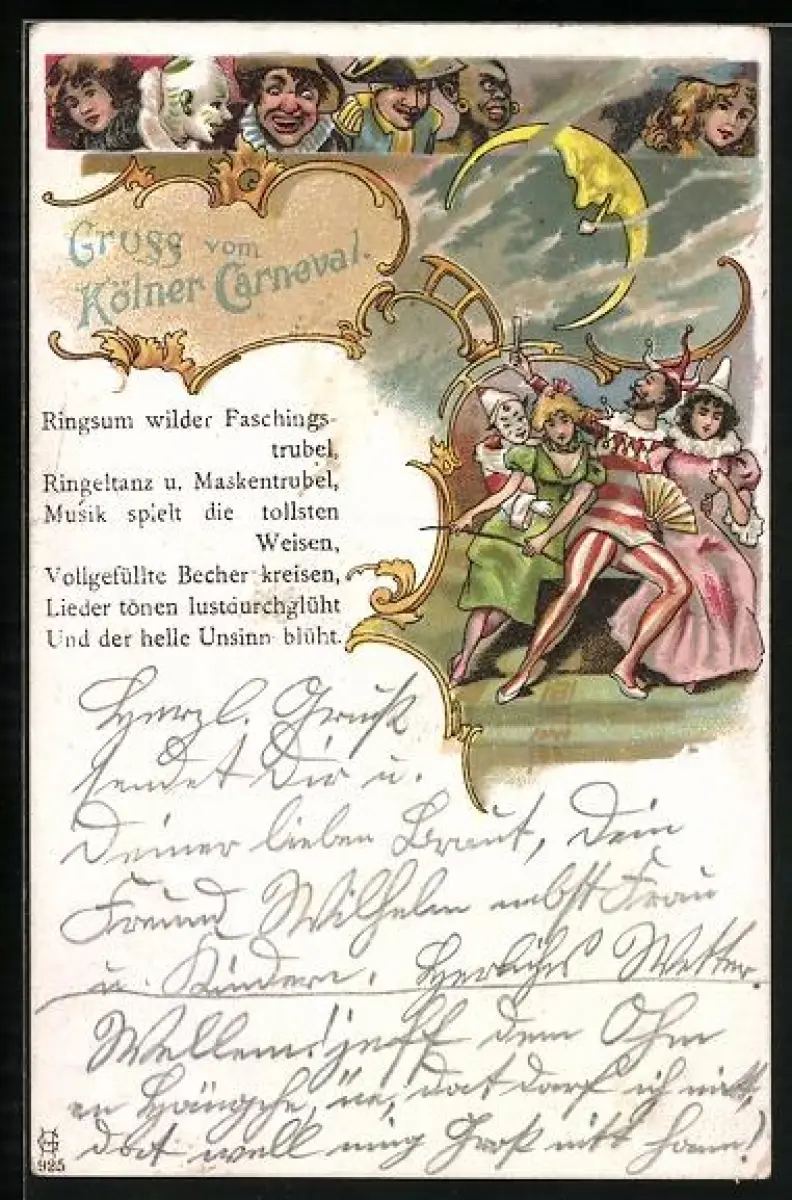 Gruss vom
Kölner Carneval.
Ringsum wilder Faschings-
trubel,
Ringeltanz u. Maskentrubel,
Musik spielt die tollsten
Weisen,
Vollgefüllte Becher kreisen,
Lieder tönen lustdurchglüht
Und der helle Unsinn blüht.
Herzl. Gruß
sendet Dir u.
Deiner lieben Braut, Dein
Freund Wilhelm nebst Frau
u. Kindern. Herliches Wetter.
Wellem! jeff dem Ohm
en Hängche, nä, dat darf ich nitt,
dat well ming Groß nitt hann!
925